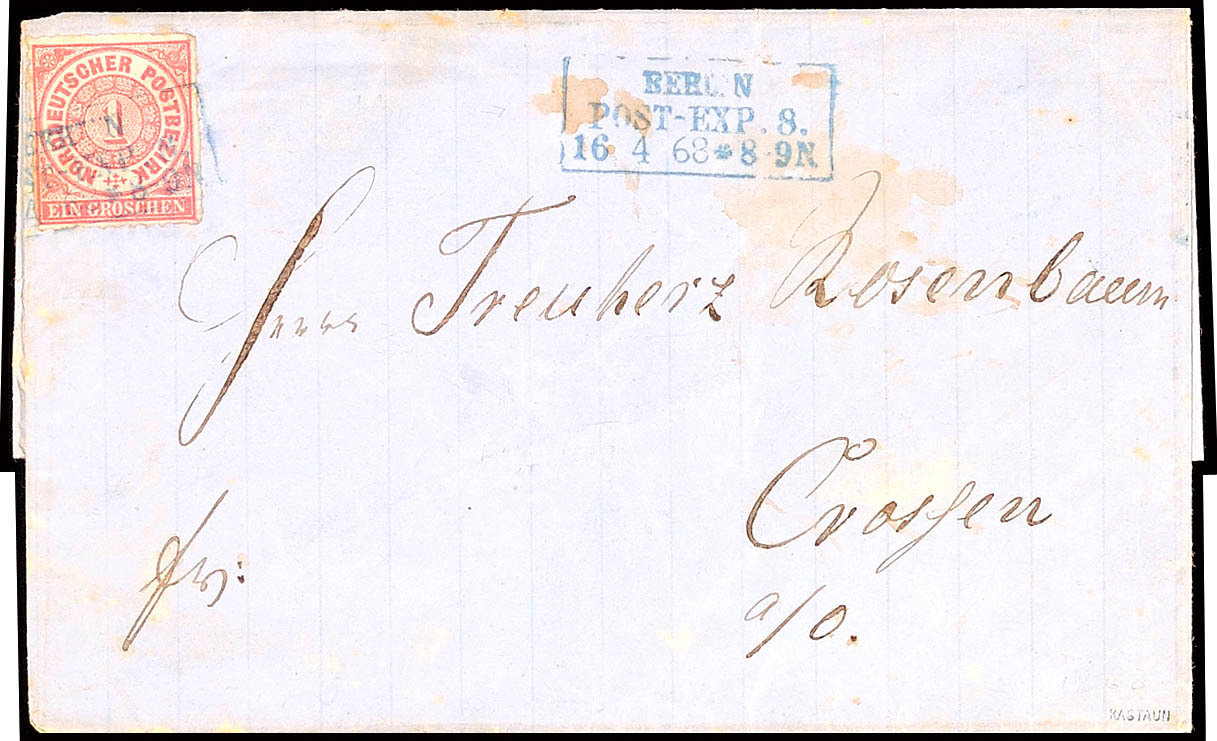 NORDDEUTSCHER POSTBEZIRK
1
EIN GROSCHEN
BERLIN
POST-EXP. 8.
16 4 68 * 8-9N
Herrn Treuherz Rosenbaum
Crossen
a/O.
fr:
KASTAUN